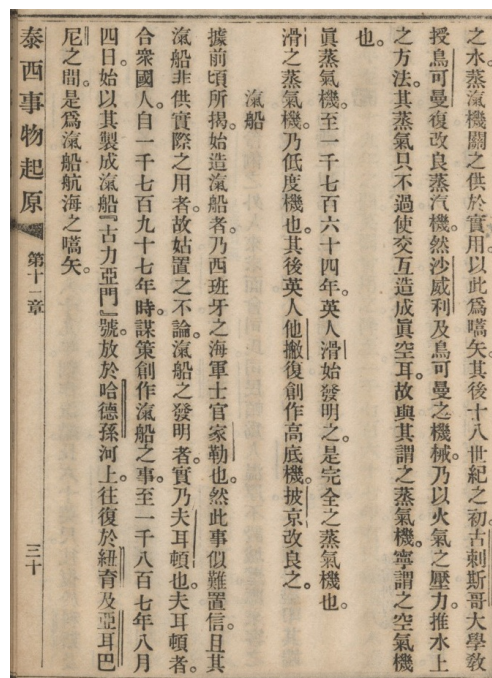 之水。蒸滊機關之供於實用。以此爲嚆矢。其後十八世紀之初。古刺斯哥大學敎
授鳥可曼復改良蒸汽機。然沙威利及鳥可曼之機械。乃以火氣之壓力。推水上
之方法。其蒸氣只不過使交互造成眞空耳。故與其謂之蒸氣機。寧謂之空氣機
也。
眞蒸氣機。至一千七百六十四年。英人滑始發明之。是完全之蒸氣機也。
滑之蒸氣機。乃低度機也。其後英人他撇復創作高底機。披京改良之。
滊船
據前頃所揭。始造滊船者。乃西班牙之海軍士官家勒也。然此事似難置信。且其
滊船非供實際之用者。故姑置之不論。滊船之發明者。實乃夫耳頓也。夫耳頓者。
合衆國人。自一千七百九十七年時。謀策創作滊船之事。至一千八百七年八月
四日。始以其製成滊船『古力亞門』號。放於哈德孫河上。往復於紐育及亞耳巴
尼之間。是爲滊船航海之嚆矢。
泰西事物起原 第十一章 三十